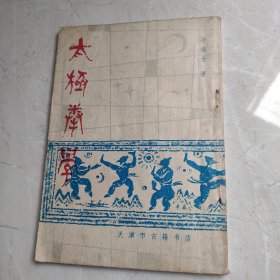 太极拳學
天津市古籍书店